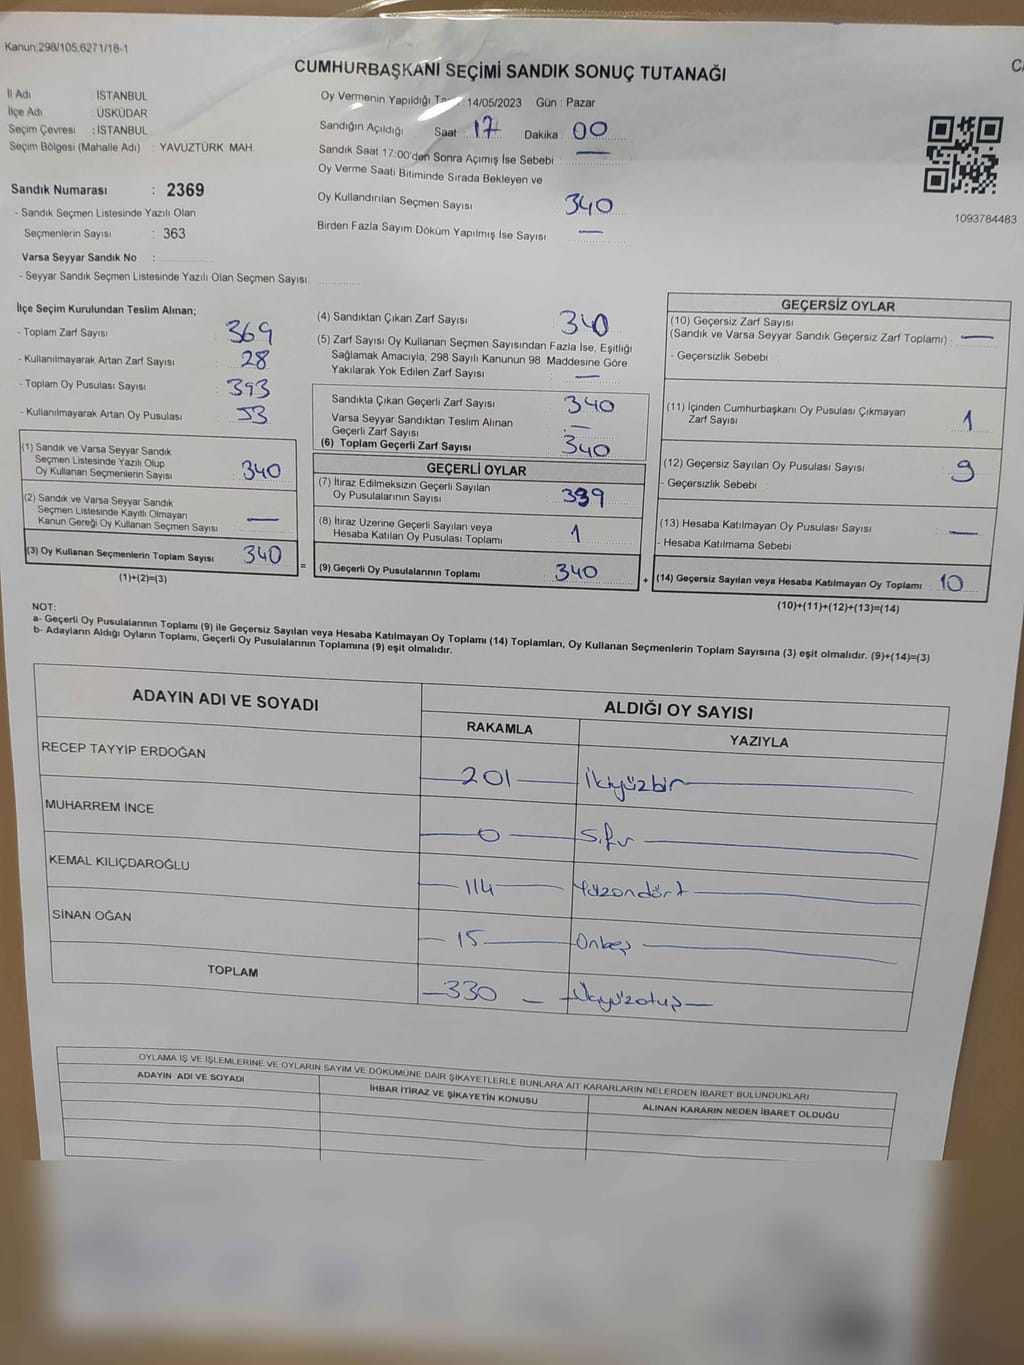 Kanun;298/105;6271/18-1
CUMHURBAŞKANI SEÇİMİ SANDIK SONUÇ TUTANAĞI
İl Adı : İSTANBUL
İlçe Adı : ÜSKÜDAR
Seçim Çevresi : İSTANBUL
Seçim Bölgesi (Mahalle Adı) : YAVUZTÜRK MAH.
Sandık Numarası : 2369
- Sandık Seçmen Listesinde Yazılı Olan
Seçmenlerin Sayısı : 363
Varsa Seyyar Sandık No :
- Seyyar Sandık Seçmen Listesinde Yazılı Olan Seçmen Sayısı:
Oy Vermenin Yapıldığı : 14/05/2023 Gün : Pazar
Sandığın Açıldığı Saat 17 Dakika 00
Sandık Saat 17:00'den Sonra Açımış İse Sebebi : —
Oy Verme Saati Bitiminde Sırada Bekleyen ve
Oy Kullandırılan Seçmen Sayısı 340
Birden Fazla Sayım Döküm Yapılmış İse Sayısı —
1093784483
İlçe Seçim Kurulundan Teslim Alınan;
- Toplam Zarf Sayısı : 369
- Kullanılmayarak Artan Zarf Sayısı : 28
- Toplam Oy Pusulası Sayısı : 393
- Kullanılmayarak Artan Oy Pusulası : 53
(1) Sandık ve Varsa Seyyar Sandık
Seçmen Listesinde Yazılı Olup
Oy Kullanan Seçmenlerin Sayısı 340
(2) Sandık ve Varsa Seyyar Sandık
Seçmen Listesinde Kayıtlı Olmayan
Kanun Gereği Oy Kullanan Seçmen Sayısı —
(3) Oy Kullanan Seçmenlerin Toplam Sayısı 340
(1)+(2)=(3)
(4) Sandıktan Çıkan Zarf Sayısı 340
(5) Zarf Sayısı Oy Kullanan Seçmen Sayısından Fazla İse, Eşitliği
Sağlamak Amacıyla, 298 Sayılı Kanunun 98. Maddesine Göre
Yakılarak Yok Edilen Zarf Sayısı —
Sandıkta Çıkan Geçerli Zarf Sayısı 340
Varsa Seyyar Sandıktan Teslim Alınan
Geçerli Zarf Sayısı —
(6) Toplam Geçerli Zarf Sayısı 340
GEÇERLİ OYLAR
(7) İtiraz Edilmeksizin Geçerli Sayılan
Oy Pusulalarının Sayısı 339
(8) İtiraz Üzerine Geçerli Sayılan veya
Hesaba Katılan Oy Pusulası Toplamı 1
= (9) Geçerli Oy Pusulalarının Toplamı 340
GEÇERSİZ OYLAR
(10) Geçersiz Zarf Sayısı
(Sandık ve Varsa Seyyar Sandık Geçersiz Zarf Toplamı) : —
- Geçersizlik Sebebi
(11) İçinden Cumhurbaşkanı Oy Pusulası Çıkmayan
Zarf Sayısı 1
(12) Geçersiz Sayılan Oy Pusulası Sayısı 9
- Geçersizlik Sebebi :
(13) Hesaba Katılmayan Oy Pusulası Sayısı —
- Hesaba Katılmama Sebebi :
+ (14) Geçersiz Sayılan veya Hesaba Katılmayan Oy Toplamı 10
(10)+(11)+(12)+(13)=(14)
NOT:
a- Geçerli Oy Pusulalarının Toplamı (9) ile Geçersiz Sayılan veya Hesaba Katılmayan Oy Toplamı (14) Toplamları, Oy Kullanan Seçmenlerin Toplam Sayısına (3) eşit olmalıdır. (9)+(14)=(3)
b- Adayların Aldığı Oyların Toplamı, Geçerli Oy Pusulalarının Toplamına (9) eşit olmalıdır.
ADAYIN ADI VE SOYADI
ALDIĞI OY SAYISI
RAKAMLA YAZIYLA
RECEP TAYYİP ERDOĞAN 201 İkiyüzbir
MUHARREM İNCE 0 Sıfır
KEMAL KILIÇDAROĞLU 114 Yüzondört
SİNAN OĞAN 15 Onbeş
TOPLAM 330 Üçyüzotuz
OYLAMA İŞ VE İŞLEMLERİNE VE OYLARIN SAYIM VE DÖKÜMÜNE DAİR ŞİKAYETLERLE BUNLARA AİT KARARLARIN NELERDEN İBARET BULUNDUKLARI
ADAYIN ADI VE SOYADI İHBAR İTİRAZ VE ŞİKAYETİN KONUSU ALINAN KARARIN NEDEN İBARET OLDUĞU